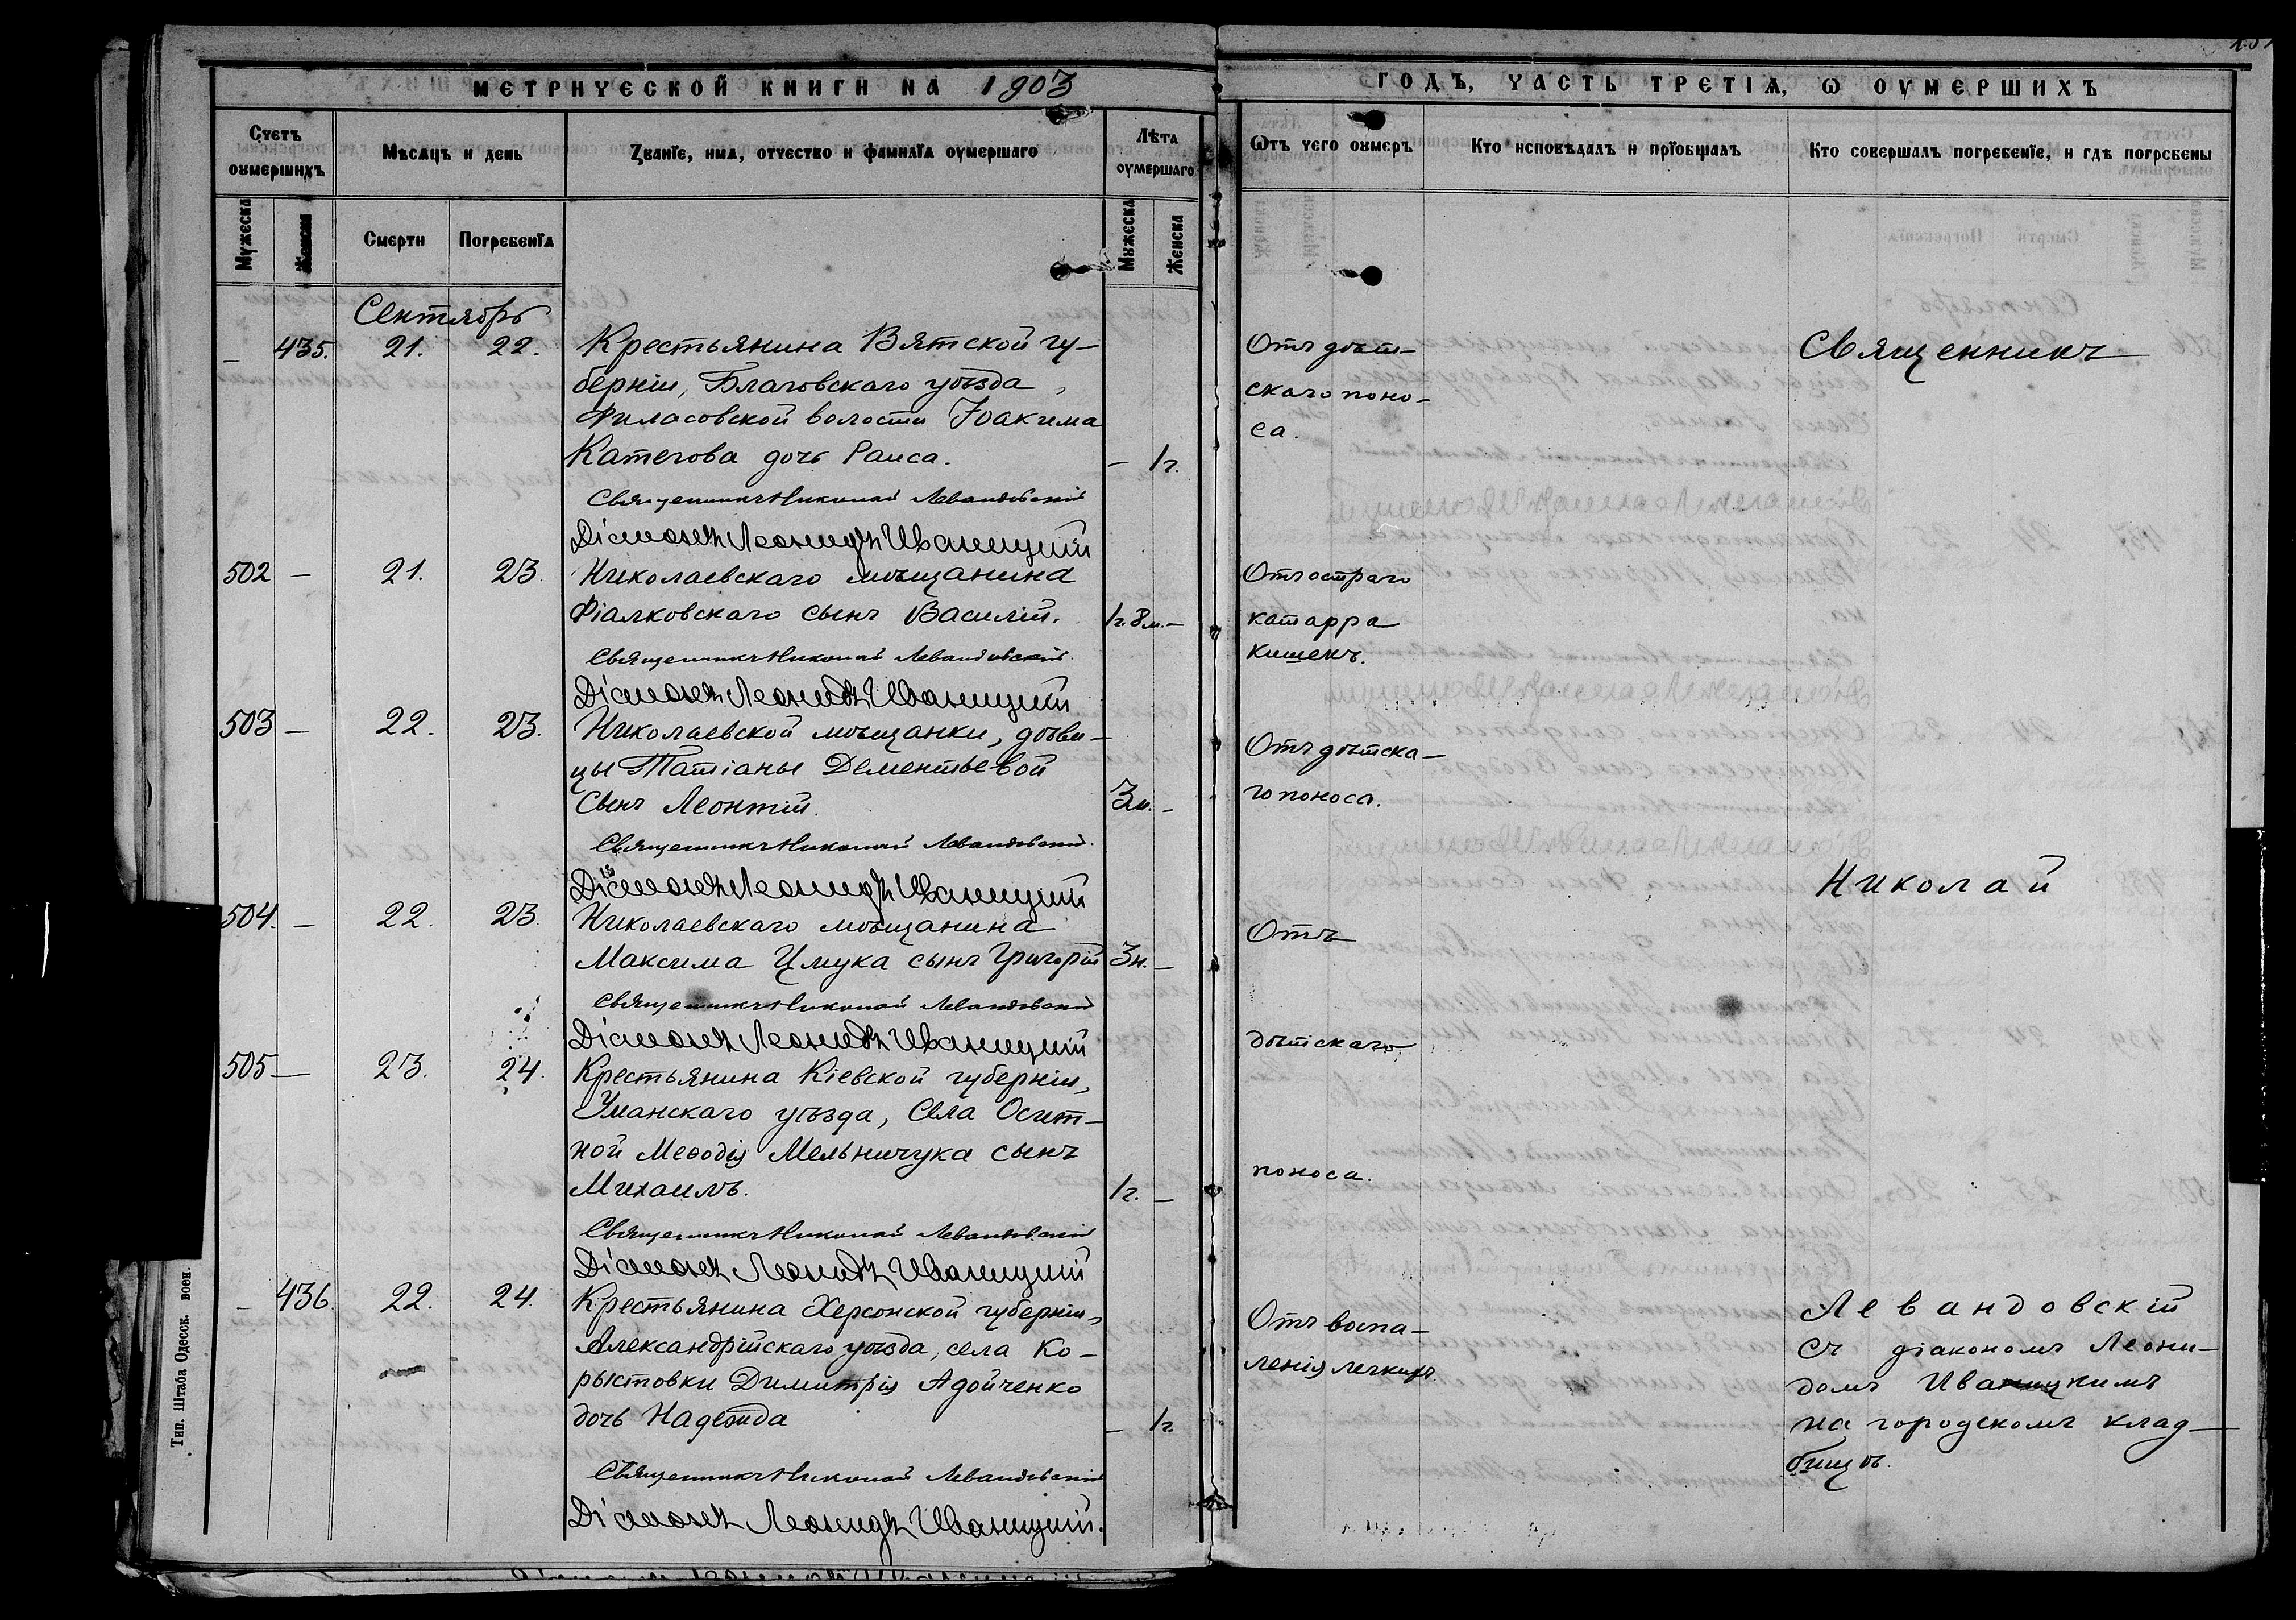 МЕТРИЧЕСКОЙ КНИГИ НА 1903
ГОДЪ, ЧАСТЬ ТРЕТІѦ, Ѡ ОУМЕРШИХЪ
Счетъ оумершихъ
Мѣсяцъ и день
Званіе, имя, отчество и фамилія оумершаго
Лѣта оумершаго
Ѿтъ чего оумеръ
Кто исповѣдалъ и пріобщалъ
Кто совершалъ погребеніе, и гдѣ погребены
Мужеска
Женска
Смерти
Погребенія
Мужеска
Женска
Сентябрь
— 435. 21. 22. Крестьянина Вятской гу-
берніи, Глазовскаго уѣзда,
волости Іоакима
Категова дочь Раиса. — 1 г.
Отъ дѣт-
скаго поно-
са.
Священникъ Николай Левандовскій
Діаконъ Леонидъ Иваницкій
502 — 21. 23. Николаевскаго мѣщанина
Фіалковскаго сынъ Василій. 1 г. 8 м. —
Отъ остраго
катарра
кишекъ.
Священникъ Николай Левандовскій
Діаконъ Леонидъ Иваницкій
503 — 22. 23. Николаевской мѣщанки, дѣви-
цы Татіаны Дементьевой
сынъ Леонтій. 3 м. —
Отъ дѣтска-
го поноса.
Священникъ Николай Левандовскій
Діаконъ Леонидъ Иваницкій
504. — 22. 23. Николаевскаго мѣщанина
Максима Цмука сынъ Григорій 3 н. —
Отъ
Священникъ Николай Левандовскій
Діаконъ Леонидъ Иваницкій
505 — 23. 24. Крестьянина Кіевской губерніи,
Уманскаго уѣзда, села Осит-
ной Меѳодія Мельничука сынъ
Михаилъ. 1 г. —
дѣтскаго
поноса.
Священникъ Николай Левандовскій
Діаконъ Леонидъ Иваницкій
— 436. 22. 24. Крестьянина Херсонской губерніи,
Александрійскаго уѣзда, села Ко-
рыстовки Димитрія Адойченко
дочь Надежда — 1 г.
Отъ воспа-
ленія легкихъ.
Священникъ Николай Левандовскій
Діаконъ Леонидъ Иваницкій.
Священникъ
Николай
Левандовскій
съ діакономъ Леони-
домъ Иваницкимъ
на городскомъ клад-
бищѣ.
Тип. Штаба Одесск. воен.